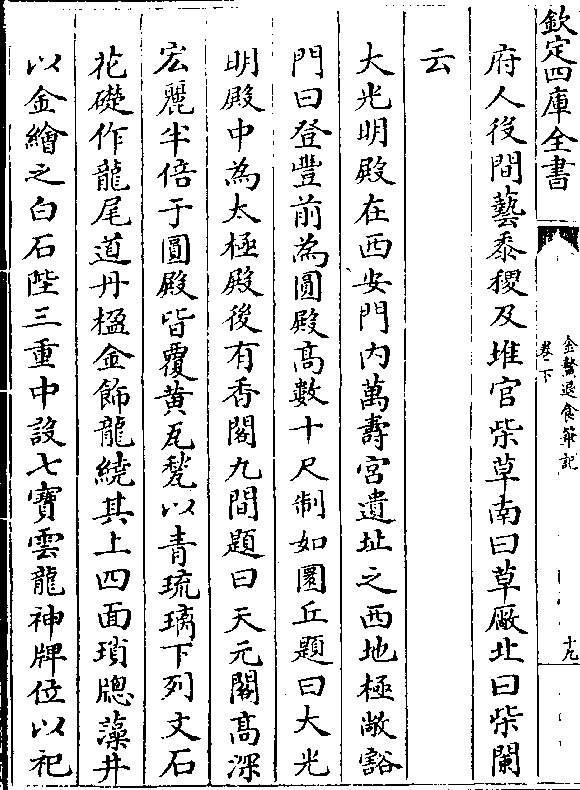 欽定四庫全書
金鰲退食筆記
卷下
十九
府人役間藝黍稷及堆官柴草南曰草厰北曰柴闌
云
大光明殿在西安門内萬壽宫遺址之西地極敞豁
門曰登豐前為圓殿高數十尺制如圜丘題曰大光
明殿中為太極殿後有香閣九間題曰天元閣高深
宏麗半倍于圓殿皆覆黄瓦甃以青琉璃下列文石
花礎作龍尾道丹楹金飾龍繞其上四面瑣牕藻井
以金繪之白石陛三重中設七寳雲龍神牌位以祀